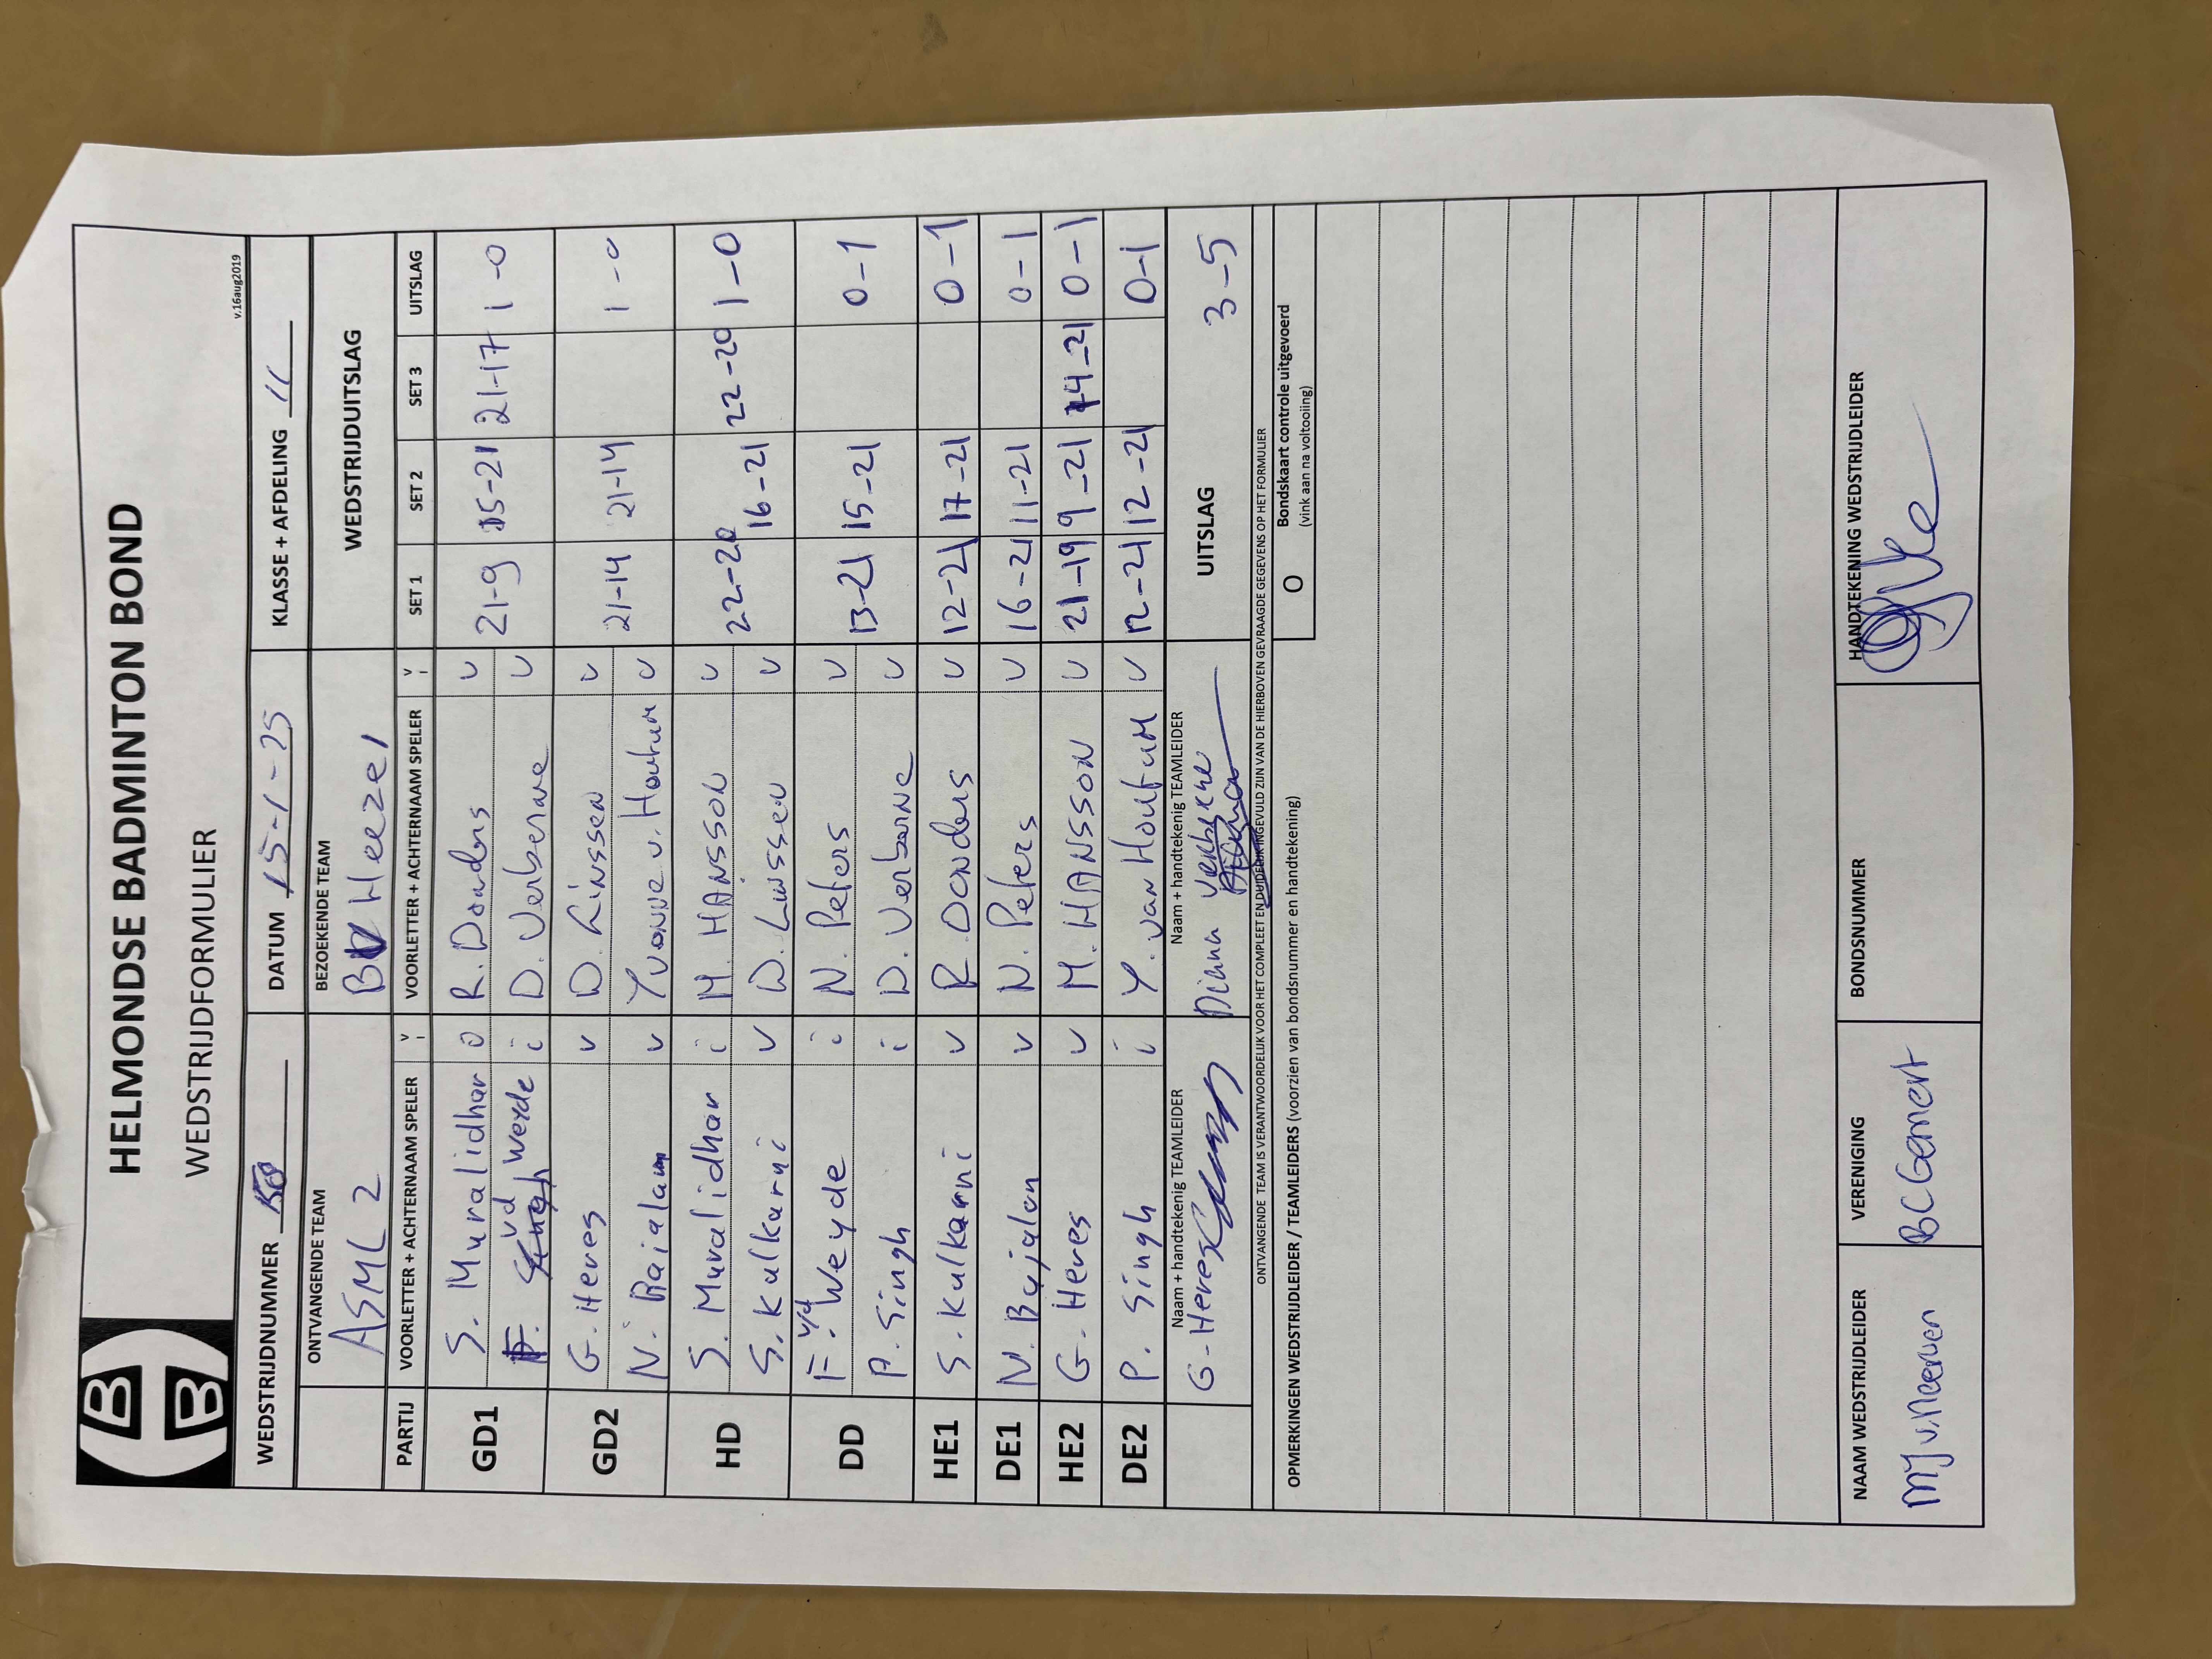 HELMONDSE BADMINTON BOND
WEDSTRIJDFORMULIER
v.16aug2019
WEDSTRIJDNUMMER DATUM 15-1-25 KLASSE + AFDELING 11
ONTVANGENDE TEAM BEZOEKENDE TEAM WEDSTRIJDUITSLAG
ASML 2 BC Heeze 1
PARTIJ VOORLETTER + ACHTERNAAM SPELER V I VOORLETTER + ACHTERNAAM SPELER V I SET 1 SET 2 SET 3 UITSLAG
GD1 S. Muralidhar v R. Donders v 21-9 15-21 21-17 1-0
F. vd Weyde i D. Verberne v
GD2 G. Heres v D. Linssen v 21-14 21-14 1-0
N. Bajalan v Yvonne v. Houtum v
HD S. Muralidhar i M. HANSSON v 22-20 16-21 22-20 1-0
S. Kulkarni v D. Linssen v
DD F. v/d Weyde i N. Peters v 13-21 15-21 0-1
P. Singh i D. Verberne v
HE1 S. Kulkarni v R. Donders v 12-21 17-21 0-1
DE1 N. Bajalan v N. Peters v 16-21 11-21 0-1
HE2 G. Heres v M. HANSSON v 21-19 9-21 14-21 0-1
DE2 P. Singh i Y. van Houtum v 12-21 12-21 0-1
Naam + handtekenig TEAMLEIDER Naam + handtekenig TEAMLEIDER UITSLAG 3-5
G. Heres Diana Verberne
ONTVANGENDE TEAM IS VERANTWOORDELIJK VOOR HET COMPLEET EN DUIDELIJK INGEVULD ZIJN VAN DE HIERBOVEN GEVRAAGDE GEGEVENS OP HET FORMULIER
OPMERKINGEN WEDSTRIJDLEIDER / TEAMLEIDERS (voorzien van bondsnummer en handtekening) O Bondskaart controle uitgevoerd
(vink aan na voltooiing)
NAAM WEDSTRIJDLEIDER VERENIGING BONDSNUMMER HANDTEKENING WEDSTRIJDLEIDER
BC Gemert